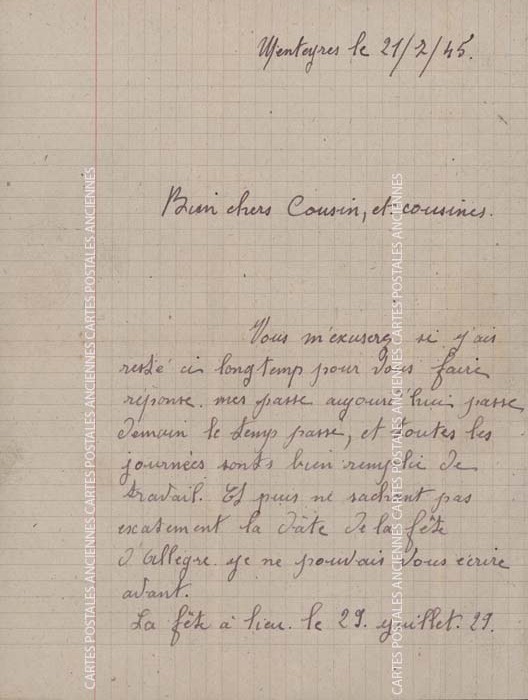 Menteyres le 21/7/45.
Bien chers Cousin, et cousines.
Vous m'excuserez si j'ais
resté ci longtemp pour vous faire
réponse. mes passe aujourd'hui passe
demain le temp passe, et toutes les
journées sonts bien remplie de
travail. Et puis ne sachent pas
exatement la date de la fête
d'Allègre. je ne pouvais vous écrire
avant.
La fête à lieu. le 29. juillet. 29.
CARTES POSTALES ANCIENNES CARTES POSTALES ANCIENNES CARTES POSTALES ANCIENNES
CARTES POSTALES ANCIENNES CARTES POSTALES ANCIENNES CARTES POSTALES ANCIENNES